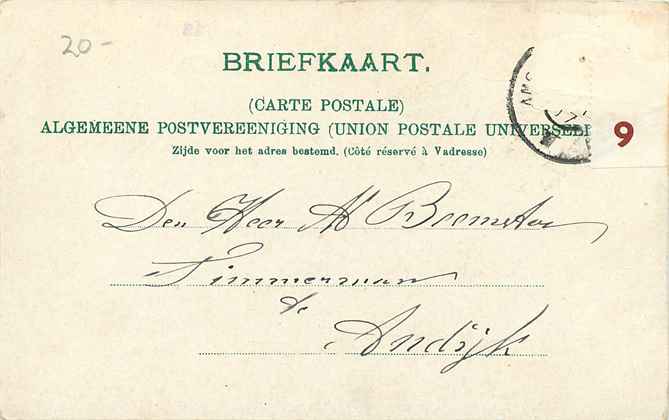 20-
BRIEFKAART.
(CARTE POSTALE)
ALGEMEENE POSTVEREENIGING (UNION POSTALE UNIVERSELL
Zijde voor het adres bestemd. (Côté réservé à Vadresse)
AMS
9
Den Heer Ab Beemster
Timmerman
te
Andijk